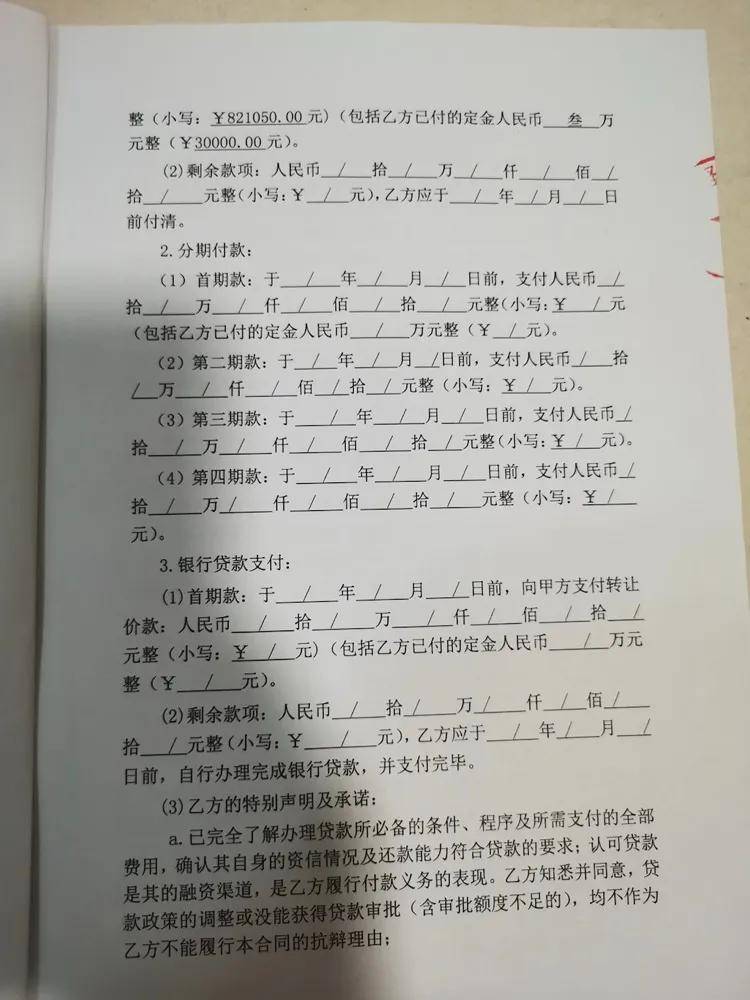 整（小写：￥821050.00元)（包括乙方已付的定金人民币 叁 万
元整（￥30000.00元)。
(2)剩余款项：人民币 / 拾 / 万 / 仟 / 佰 /
拾 / 元整(小写：￥ / 元),乙方应于 / 年 / 月 / 日
前付清。
2.分期付款：
（1）首期款：于 / 年 / 月 / 日前，支付人民币 /
拾 / 万 / 仟 / 佰 / 拾 / 元整(小写：￥ / 元
（包括乙方已付的定金人民币 / 万元整（￥ / 元)。
（2）第二期款：于 / 年 / 月 / 日前，支付人民币 / 拾
/ 万 / 仟 / 佰 / 拾 / 元整（小写：￥ / 元)。
（3）第三期款：于 / 年 / 月 / 日前，支付人民币 /
拾 / 万 / 仟 / 佰 / 拾 / 元整(小写：￥ / 元)。
（4）第四期款：于 / 年 / 月 / 日前，支付人民币 /
拾 / 万 / 仟 / 佰 / 拾 / 元整（小写：￥ /
元)。
3.银行贷款支付：
(1)首期款：于 / 年 / 月 / 日前，向甲方支付转让
价款：人民币 / 拾 / 万 / 仟 / 佰 / 拾 /
元整（小写：￥ / 元)（包括乙方已付的定金人民币 / 万元
整（￥ / 元)。
(2)剩余款项：人民币 / 拾 / 万 / 仟 / 佰 /
拾 / 元整(小写：￥ / 元),乙方应于 / 年 / 月 /
日前，自行办理完成银行贷款，并支付完毕。
(3)乙方的特别声明及承诺：
a.已完全了解办理贷款所必备的条件、程序及所需支付的全部
费用，确认其自身的资信情况及还款能力符合贷款的要求；认可贷款
是其的融资渠道，是乙方履行付款义务的表现。乙方知悉并同意，贷
款政策的调整或没能获得贷款审批（含审批额度不足的），均不作为
乙方不能履行本合同的抗辩理由；